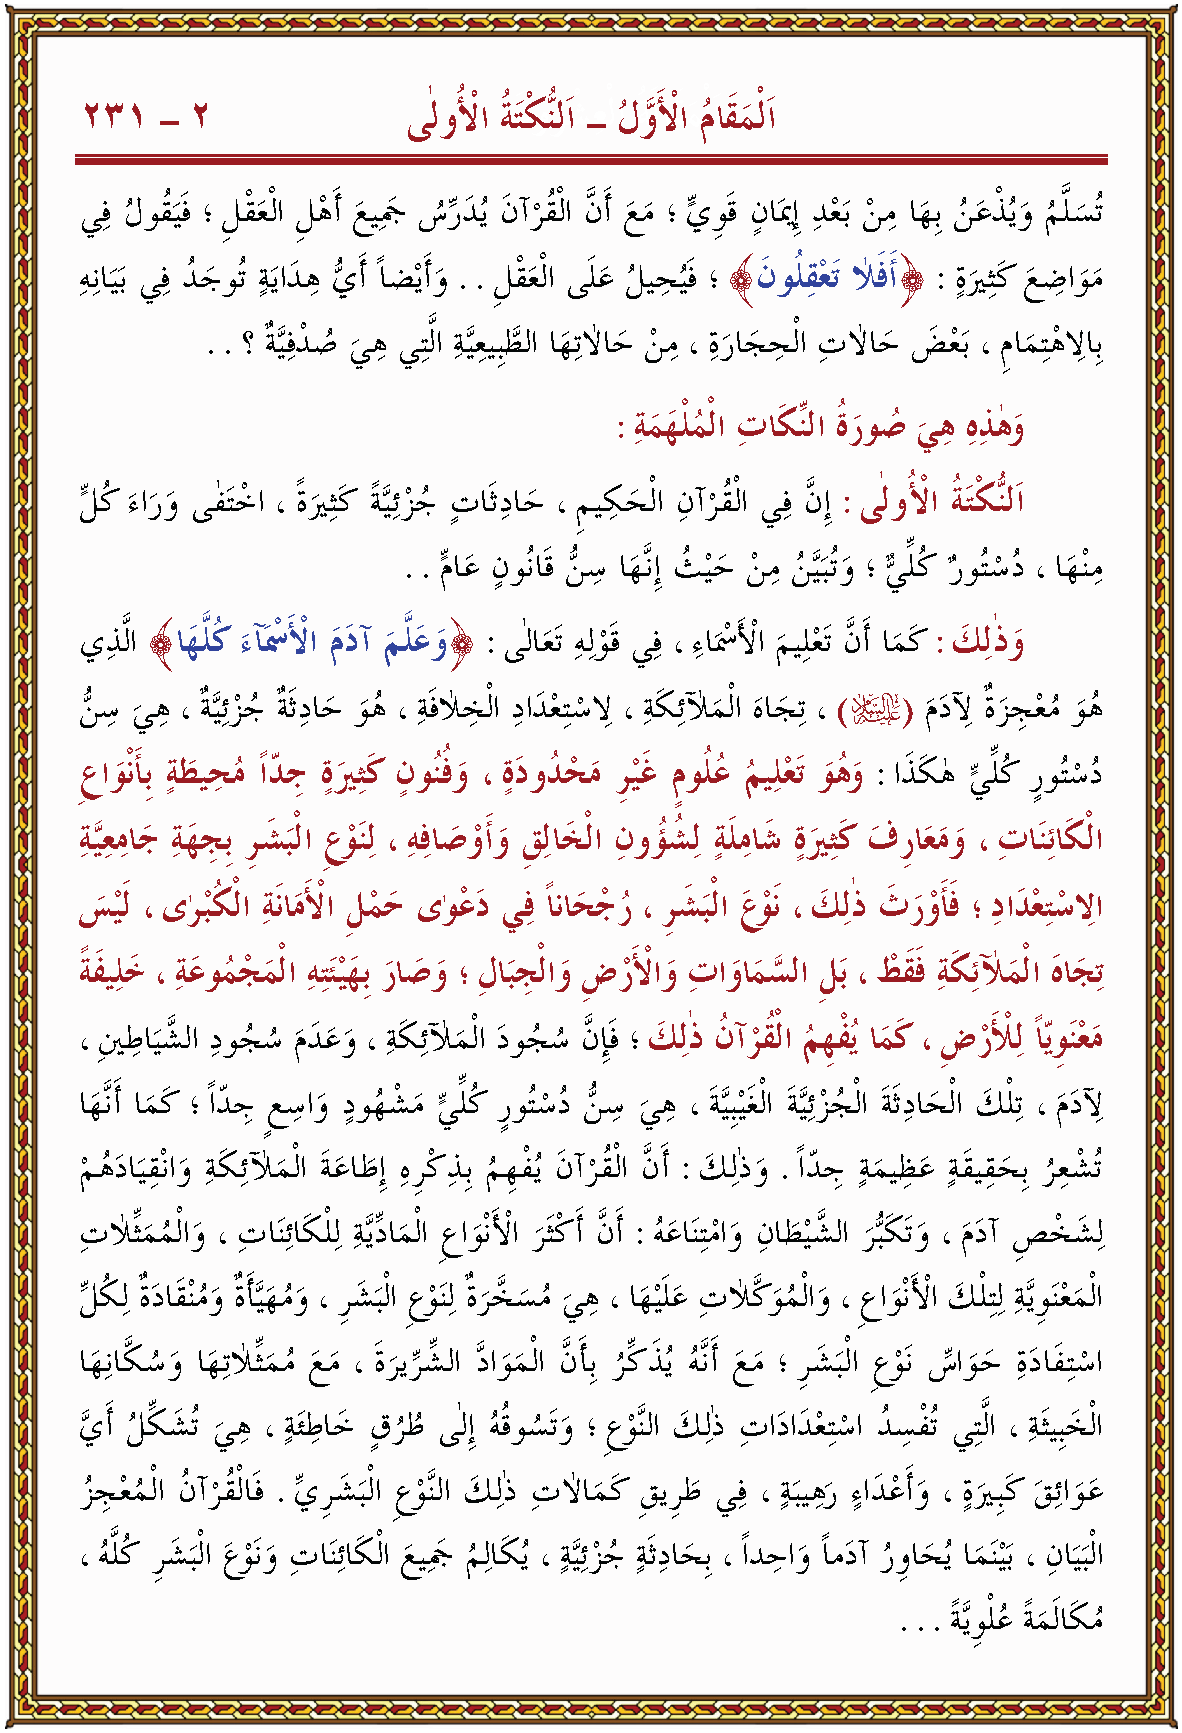 اَلْمَقَامُ الْأَوَّلُ – اَلنُّكْتَةُ الْأُولٰى ٢ – ٢٣١
تُسَلَّمُ وَيُذْعَنُ بِهَا مِنْ بَعْدِ إِيمَانٍ قَوِيٍّ ؛ مَعَ أَنَّ الْقُرْآنَ يُدَرِّسُ جَمِيعَ أَهْلِ الْعَقْلِ ؛ فَيَقُولُ فِي
مَوَاضِعَ كَثِيرَةٍ : ﴿أَفَلَا تَعْقِلُونَ﴾ ؛ فَيُحِيلُ عَلَى الْعَقْلِ . . وَأَيْضاً أَيُّ هِدَايَةٍ تُوجَدُ فِي بَيَانِهِ
بِالِاهْتِمَامِ ، بَعْضَ حَالَاتِ الْحِجَارَةِ ، مِنْ حَالَاتِهَا الطَّبِيعِيَّةِ الَّتِي هِيَ صُدْفِيَّةٌ ؟ . .
وَهٰذِهِ هِيَ صُورَةُ النِّكَاتِ الْمُلْهَمَةِ :
اَلنُّكْتَةُ الْأُولٰى : إِنَّ فِي الْقُرْآنِ الْحَكِيمِ ، حَادِثَاتٍ جُزْئِيَّةً كَثِيرَةً ، اخْتَفٰى وَرَاءَ كُلٍّ
مِنْهَا ، دُسْتُورٌ كُلِّيٌّ ؛ وَتُبَيَّنُ مِنْ حَيْثُ إِنَّهَا سِنُّ قَانُونٍ عَامٍّ . .
وَذٰلِكَ : كَمَا أَنَّ تَعْلِيمَ الْأَسْمَاءِ ، فِي قَوْلِهِ تَعَالٰى : ﴿وَعَلَّمَ آدَمَ الْأَسْمَآءَ كُلَّهَا﴾ الَّذِي
هُوَ مُعْجِزَةٌ لِآدَمَ (عَلَيْهِ السَّلَامُ) ، تِجَاهَ الْمَلٰٓئِكَةِ ، لِاسْتِعْدَادِ الْخِلَافَةِ ، هُوَ حَادِثَةٌ جُزْئِيَّةٌ ، هِيَ سِنُّ
دُسْتُورٍ كُلِّيٍّ هٰكَذَا : وَهُوَ تَعْلِيمُ عُلُومٍ غَيْرِ مَحْدُودَةٍ ، وَفُنُونٍ كَثِيرَةٍ جِدّاً مُحِيطَةٍ بِأَنْوَاعِ
الْكَائِنَاتِ ، وَمَعَارِفَ كَثِيرَةٍ شَامِلَةٍ لِشُؤُونِ الْخَالِقِ وَأَوْصَافِهِ ، لِنَوْعِ الْبَشَرِ بِجِهَةِ جَامِعِيَّةِ
الِاسْتِعْدَادِ ؛ فَأَوْرَثَ ذٰلِكَ ، نَوْعَ الْبَشَرِ ، رُجْحَاناً فِي دَعْوٰى حَمْلِ الْأَمَانَةِ الْكُبْرٰى ، لَيْسَ
تِجَاهَ الْمَلٰٓئِكَةِ فَقَطْ ، بَلِ السَّمَاوَاتِ وَالْأَرْضِ وَالْجِبَالِ ؛ وَصَارَ بِهَيْئَتِهِ الْمَجْمُوعَةِ ، خَلِيفَةً
مَعْنَوِيّاً لِلْأَرْضِ ، كَمَا يُفْهِمُ الْقُرْآنُ ذٰلِكَ ؛ فَإِنَّ سُجُودَ الْمَلٰٓئِكَةِ ، وَعَدَمَ سُجُودِ الشَّيَاطِينِ ،
لِآدَمَ ، تِلْكَ الْحَادِثَةَ الْجُزْئِيَّةَ الْغَيْبِيَّةَ ، هِيَ سِنُّ دُسْتُورٍ كُلِّيٍّ مَشْهُودٍ وَاسِعٍ جِدّاً ؛ كَمَا أَنَّهَا
تُشْعِرُ بِحَقِيقَةٍ عَظِيمَةٍ جِدّاً . وَذٰلِكَ : أَنَّ الْقُرْآنَ يُفْهِمُ بِذِكْرِهِ إِطَاعَةَ الْمَلٰٓئِكَةِ وَانْقِيَادَهُمْ
لِشَخْصِ آدَمَ ، وَتَكَبُّرَ الشَّيْطَانِ وَامْتِنَاعَهُ : أَنَّ أَكْثَرَ الْأَنْوَاعِ الْمَادِّيَّةِ لِلْكَائِنَاتِ ، وَالْمُمَثِّلَاتِ
الْمَعْنَوِيَّةِ لِتِلْكَ الْأَنْوَاعِ ، وَالْمُوَكَّلَاتِ عَلَيْهَا ، هِيَ مُسَخَّرَةٌ لِنَوْعِ الْبَشَرِ ، وَمُهَيَّأَةٌ وَمُنْقَادَةٌ لِكُلِّ
اسْتِفَادَةِ حَوَاسِّ نَوْعِ الْبَشَرِ ؛ مَعَ أَنَّهُ يُذَكِّرُ بِأَنَّ الْمَوَادَّ الشِّرِّيرَةَ ، مَعَ مُمَثِّلَاتِهَا وَسُكَّانِهَا
الْخَبِيثَةِ ، الَّتِي تُفْسِدُ اسْتِعْدَادَاتِ ذٰلِكَ النَّوْعِ ؛ وَتَسُوقُهُ إِلٰى طُرُقٍ خَاطِئَةٍ ، هِيَ تُشَكِّلُ أَيَّ
عَوَائِقَ كَبِيرَةٍ ، وَأَعْدَاءٍ رَهِيبَةٍ ، فِي طَرِيقِ كَمَالَاتِ ذٰلِكَ النَّوْعِ الْبَشَرِيِّ . فَالْقُرْآنُ الْمُعْجِزُ
الْبَيَانِ ، بَيْنَمَا يُحَاوِرُ آدَماً وَاحِداً ، بِحَادِثَةٍ جُزْئِيَّةٍ ، يُكَالِمُ جَمِيعَ الْكَائِنَاتِ وَنَوْعَ الْبَشَرِ كُلَّهُ ،
مُكَالَمَةً عُلْوِيَّةً . . .